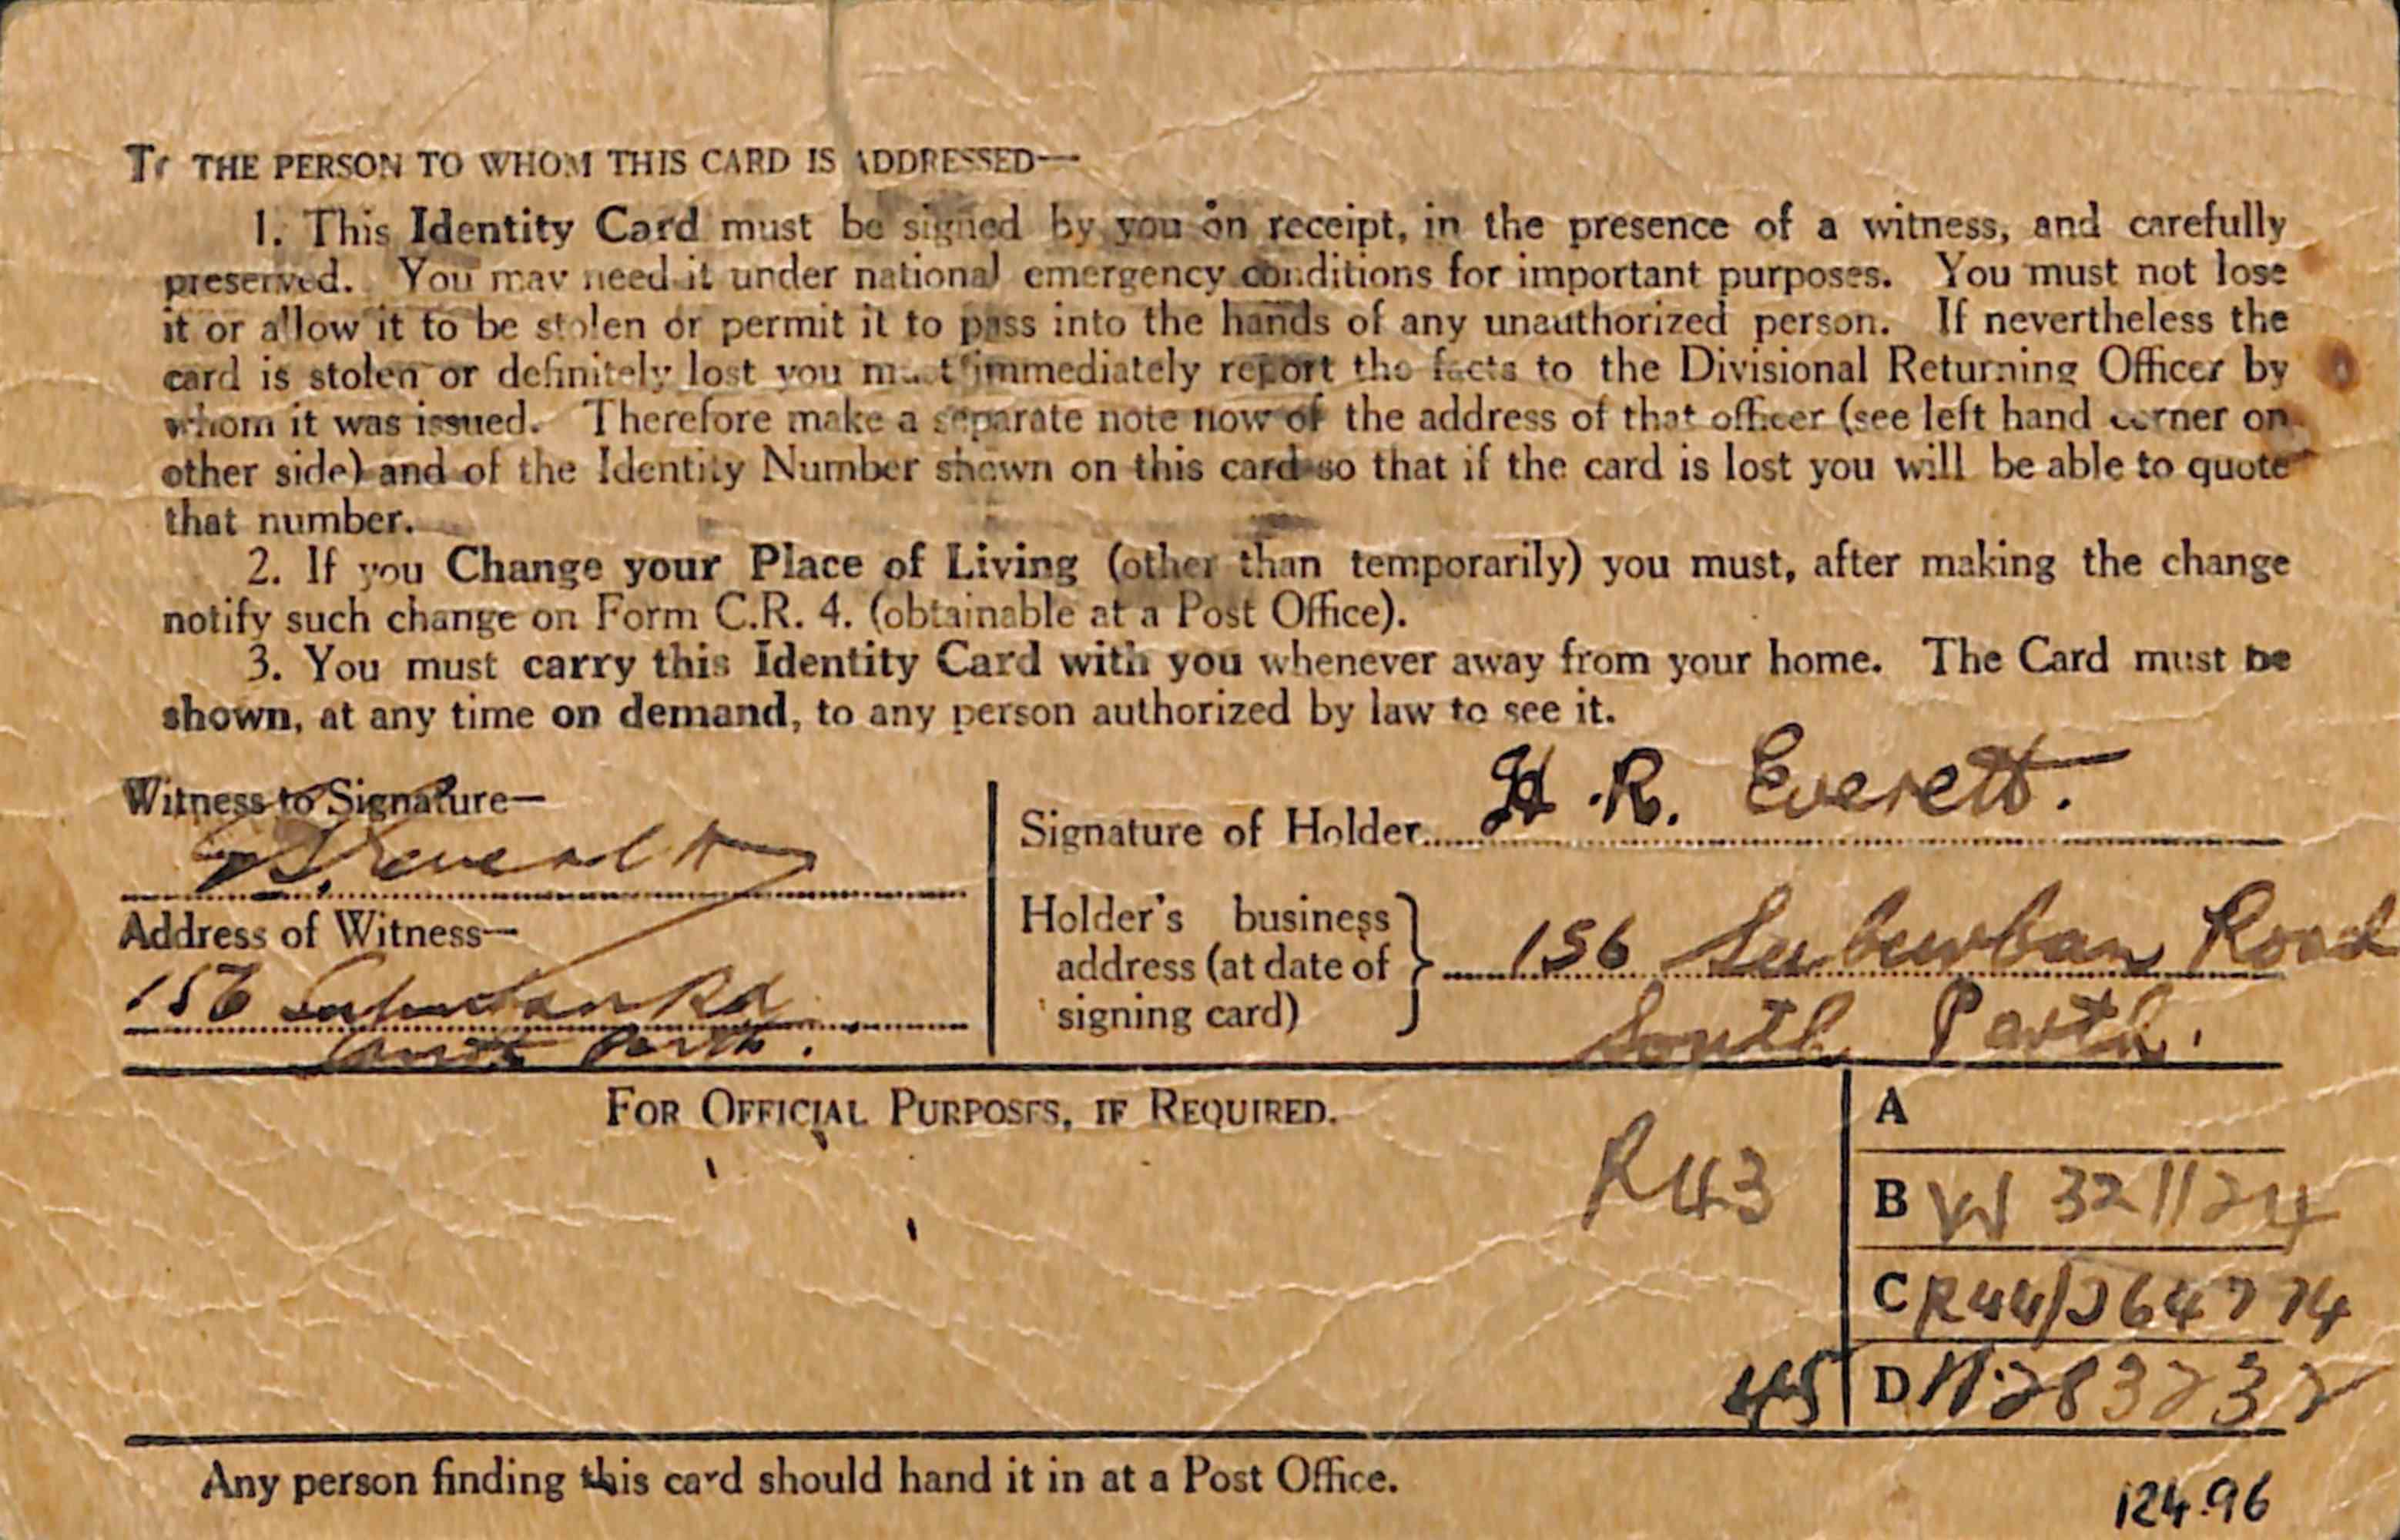 To THE PERSON TO WHOM THIS CARD IS ADDRESSED—
1. This Identity Card must be signed by you on receipt, in the presence of a witness, and carefully
preserved. You may need it under national emergency conditions for important purposes. You must not lose
it or allow it to be stolen or permit it to pass into the hands of any unauthorized person. If nevertheless the
card is stolen or definitely lost you must immediately report the facts to the Divisional Returning Officer by
whom it was issued. Therefore make a separate note now of the address of that officer (see left hand corner on
other side) and of the Identity Number shown on this card so that if the card is lost you will be able to quote
that number.
2. If you Change your Place of Living (other than temporarily) you must, after making the change
notify such change on Form C.R. 4. (obtainable at a Post Office).
3. You must carry this Identity Card with you whenever away from your home. The Card must be
shown, at any time on demand, to any person authorized by law to see it.
Witness to Signature—
Address of Witness—
156 Suburban Rd
South Perth.
Signature of Holder H. R. Everett.
Holder's business
address (at date of
signing card)
156 Suburban Road
South Perth.
FOR OFFICIAL PURPOSES, IF REQUIRED.
R43
A
B W 321124
C R44/
45
D
Any person finding this card should hand it in at a Post Office.
124.96